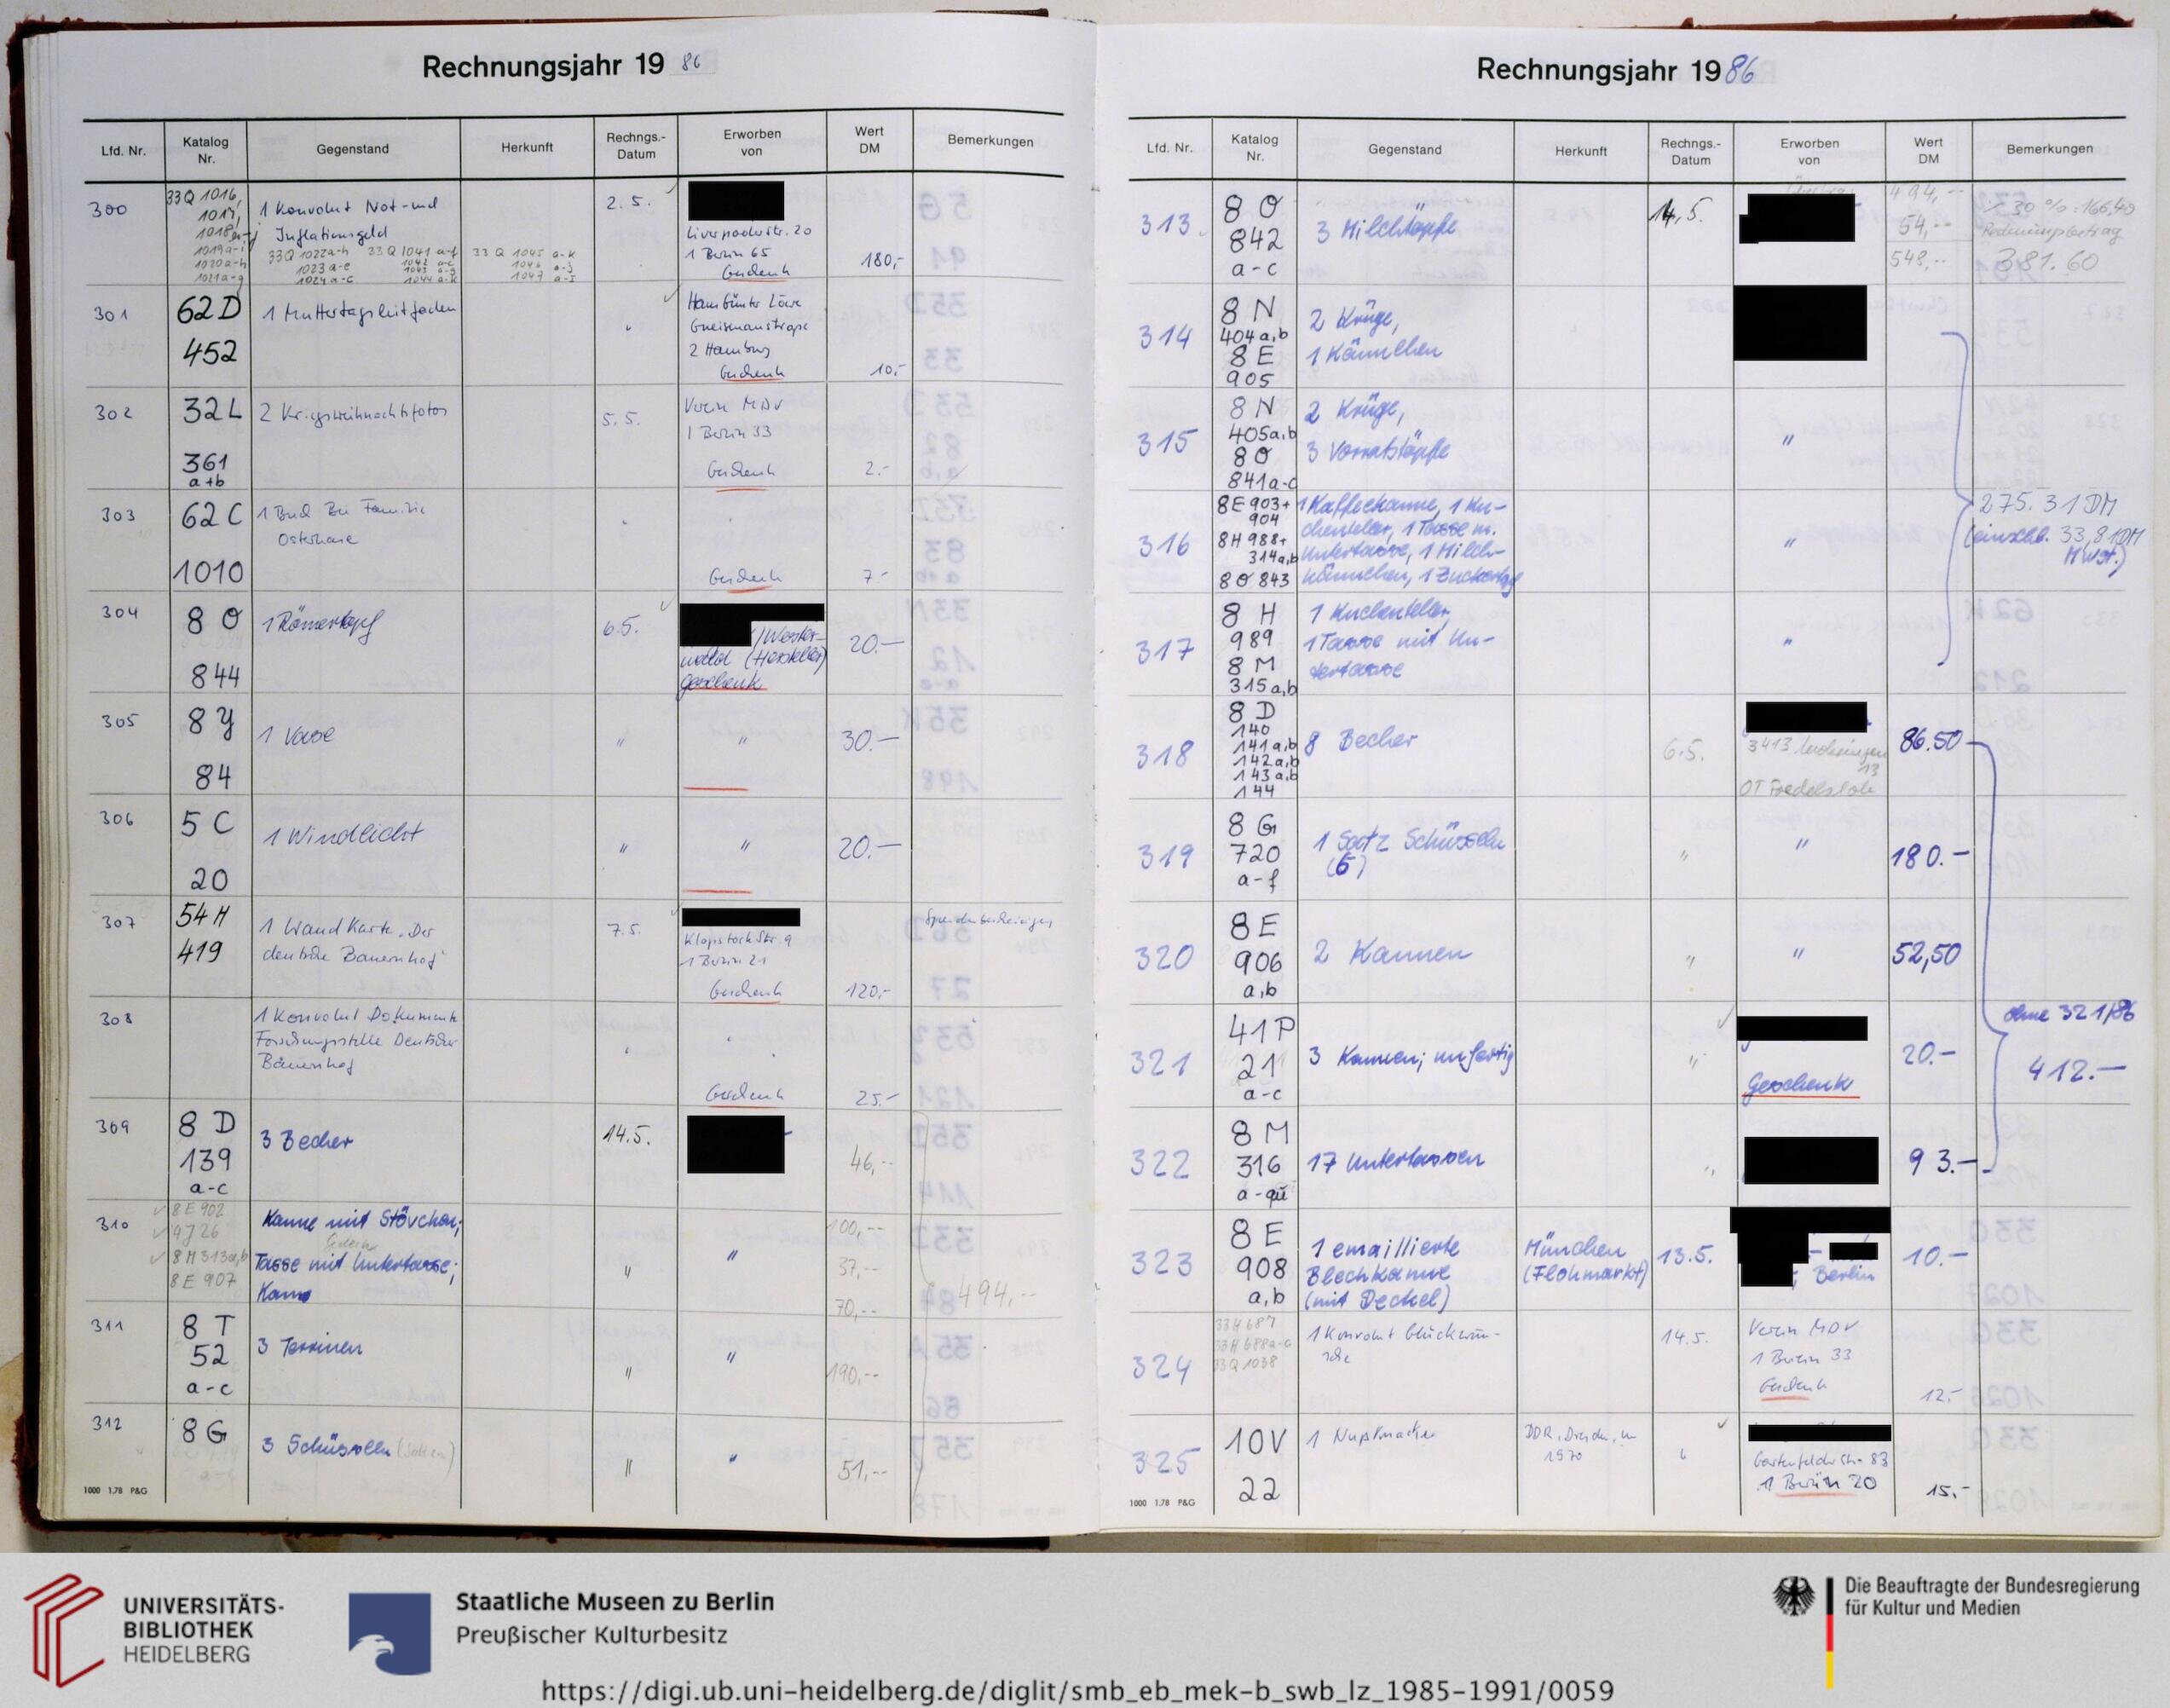 Rechnungsjahr 19 86
Lfd. Nr.
Katalog Nr.
Gegenstand
Herkunft
Rechngs.-Datum
Erworben von
Wert DM
Bemerkungen
300
33Q 1016,
1017,
1018
1019 a-i
1020 a-h
1021 a-g
1 Konvolut Not- und
Inflationsgeld
33Q 1022 a-h 33Q 1041 a-f 33 Q 1045 a-k
1023 a-e 1042 a-c 1046 a-j
1024 a-c 1043 a-g 1047 a-j
1044 a-k
2.5.
Liverpooler Str. 20
1 Berlin 65
Geschenk
180,-
301
62D
452
1 Muttertagsleitfaden
"
Hans Günter Löwe
Gneisenaustraße
2 Hamburg
Geschenk
10,-
302
32L
361
a+b
2 Kriegsweihnachtsfotos
5.5.
Verein MDV
1 Berlin 33
Geschenk
2.-
303
62C
1010
1 Bild Bei Familie
Osterhase
"
"
Geschenk
7.-
304
8 O
844
1 Römertopf
6.5.
/Wester-
wald (Hersteller)
Geschenk
20.—
305
8 Y
84
1 Vase
"
"
30.—
306
5 C
20
1 Windlicht
"
"
20.—
307
54 H
419
1 Wandkarte „Der
deutsche Bauernhof"
7.5.
Klopstockstr. 9
1 Berlin 21
Geschenk
120,-
Spendenbescheinigung
308
1 Konvolut Dokumente
Forschungsstelle Deutscher
Bauernhof
"
"
Geschenk
25.-
309
8 D
139
a-c
3 Becher
14.5.
46,--
310
8E 902
4J 26
8M 313a,b
8E 907
Kanne mit Stövchen;
Tasse mit Untertasse;
Kanne
"
"
100,--
37,--
70,--
494,--
311
8 T
52
a-c
3 Terrinen
"
"
190,--
312
8 G
3 Schüsseln
"
"
51,--
1000 1.78 P&G
Rechnungsjahr 1986
Lfd. Nr.
Katalog Nr.
Gegenstand
Herkunft
Rechngs.-Datum
Erworben von
Wert DM
Bemerkungen
313
8 O
842
a-c
3 Milchtöpfe
14.5.
Übertrag
494,--
54,--
548,--
% 30 % = 166,40
Rechnungsbetrag
381.60
314
8 N
404 a,b
8 E
905
2 Krüge,
1 Kännchen
315
8 N
405a,b
8 O
841a-c
2 Krüge,
3 Vorratstöpfe
"
275.31 DM
(einschl. 33,81 DM
MWst.)
316
8E 903+
904
8H 988+
314a,b
8 O 843
1 Kaffeekanne, 1 Ku-
chenteller, 1 Tasse m.
Untertasse, 1 Milch-
kännchen, 1 Zuckertopf
"
317
8 H
989
8 M
315 a,b
1 Kuchenteller,
1 Tasse mit Un-
tertasse
"
318
8 D
140
141 a,b
142 a,b
143 a,b
144
8 Becher
6.5.
3413
13
OT Fredelsloh
86.50
319
8 G
720
a-f
1 Satz Schüsseln
(6)
"
"
180.—
320
8 E
906
a,b
2 Kannen
"
"
52,50
321
41P
21
a-c
3 Kannen; unfertig
"
Geschenk
20.—
ohne 321/86
412.—
322
8 M
316
a-qu
17 Untertassen
"
93.—
323
8 E
908
a,b
1 emaillierte
Blechkanne
(mit Deckel)
München
(Flohmarkt)
13.5.
Berlin
10.—
324
33H 687
33H 688a-c
33Q 1038
1 Konvolut Glückwün-
sche
14.5.
Verein MDV
1 Berlin 33
Geschenk
12.-
325
10V
22
1 Nußknacker
DDR, Dresden, um
1970
"
Gartenfelder Str. 83
1 Berlin 20
15.-
1000 1.78 P&G
UNIVERSITÄTS-
BIBLIOTHEK
HEIDELBERG
Staatliche Museen zu Berlin
Preußischer Kulturbesitz
Die Beauftragte der Bundesregierung
für Kultur und Medien
https://digi.ub.uni-heidelberg.de/diglit/smb_eb_mek-b_swb_lz_1985-1991/0059